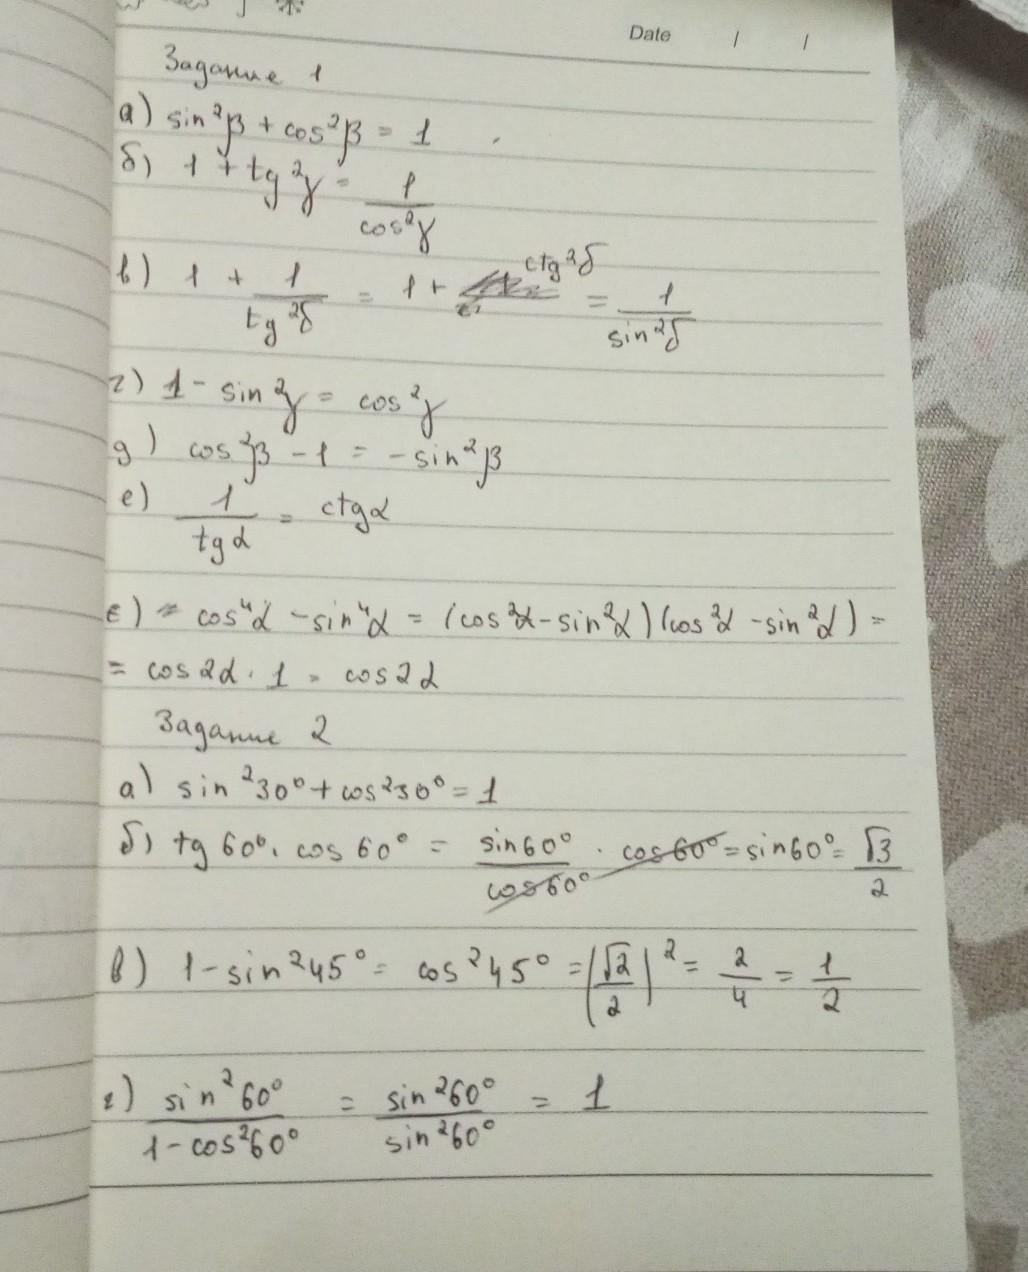 Date / /
Задание 1
а) sin²β + cos²β = 1
б) 1 + tg²γ = 1/cos²γ
в) 1 + 1/tg²δ = 1 + ctg²δ = 1/sin²δ
г) 1 - sin²γ = cos²γ
д) cos²β - 1 = - sin²β
е) 1/tgα = ctgα
е) = cos⁴α - sin⁴α = (cos²α - sin²α)(cos²α - sin²α) =
= cos2α · 1 = cos2α
Задание 2
а) sin²30° + cos²30° = 1
б) tg 60° · cos 60° = sin60°/cos60° · cos60° = sin60° = √3/2
в) 1 - sin²45° = cos²45° = (√2/2)² = 2/4 = 1/2
г) sin²60°/1 - cos²60° = sin²60°/sin²60° = 1